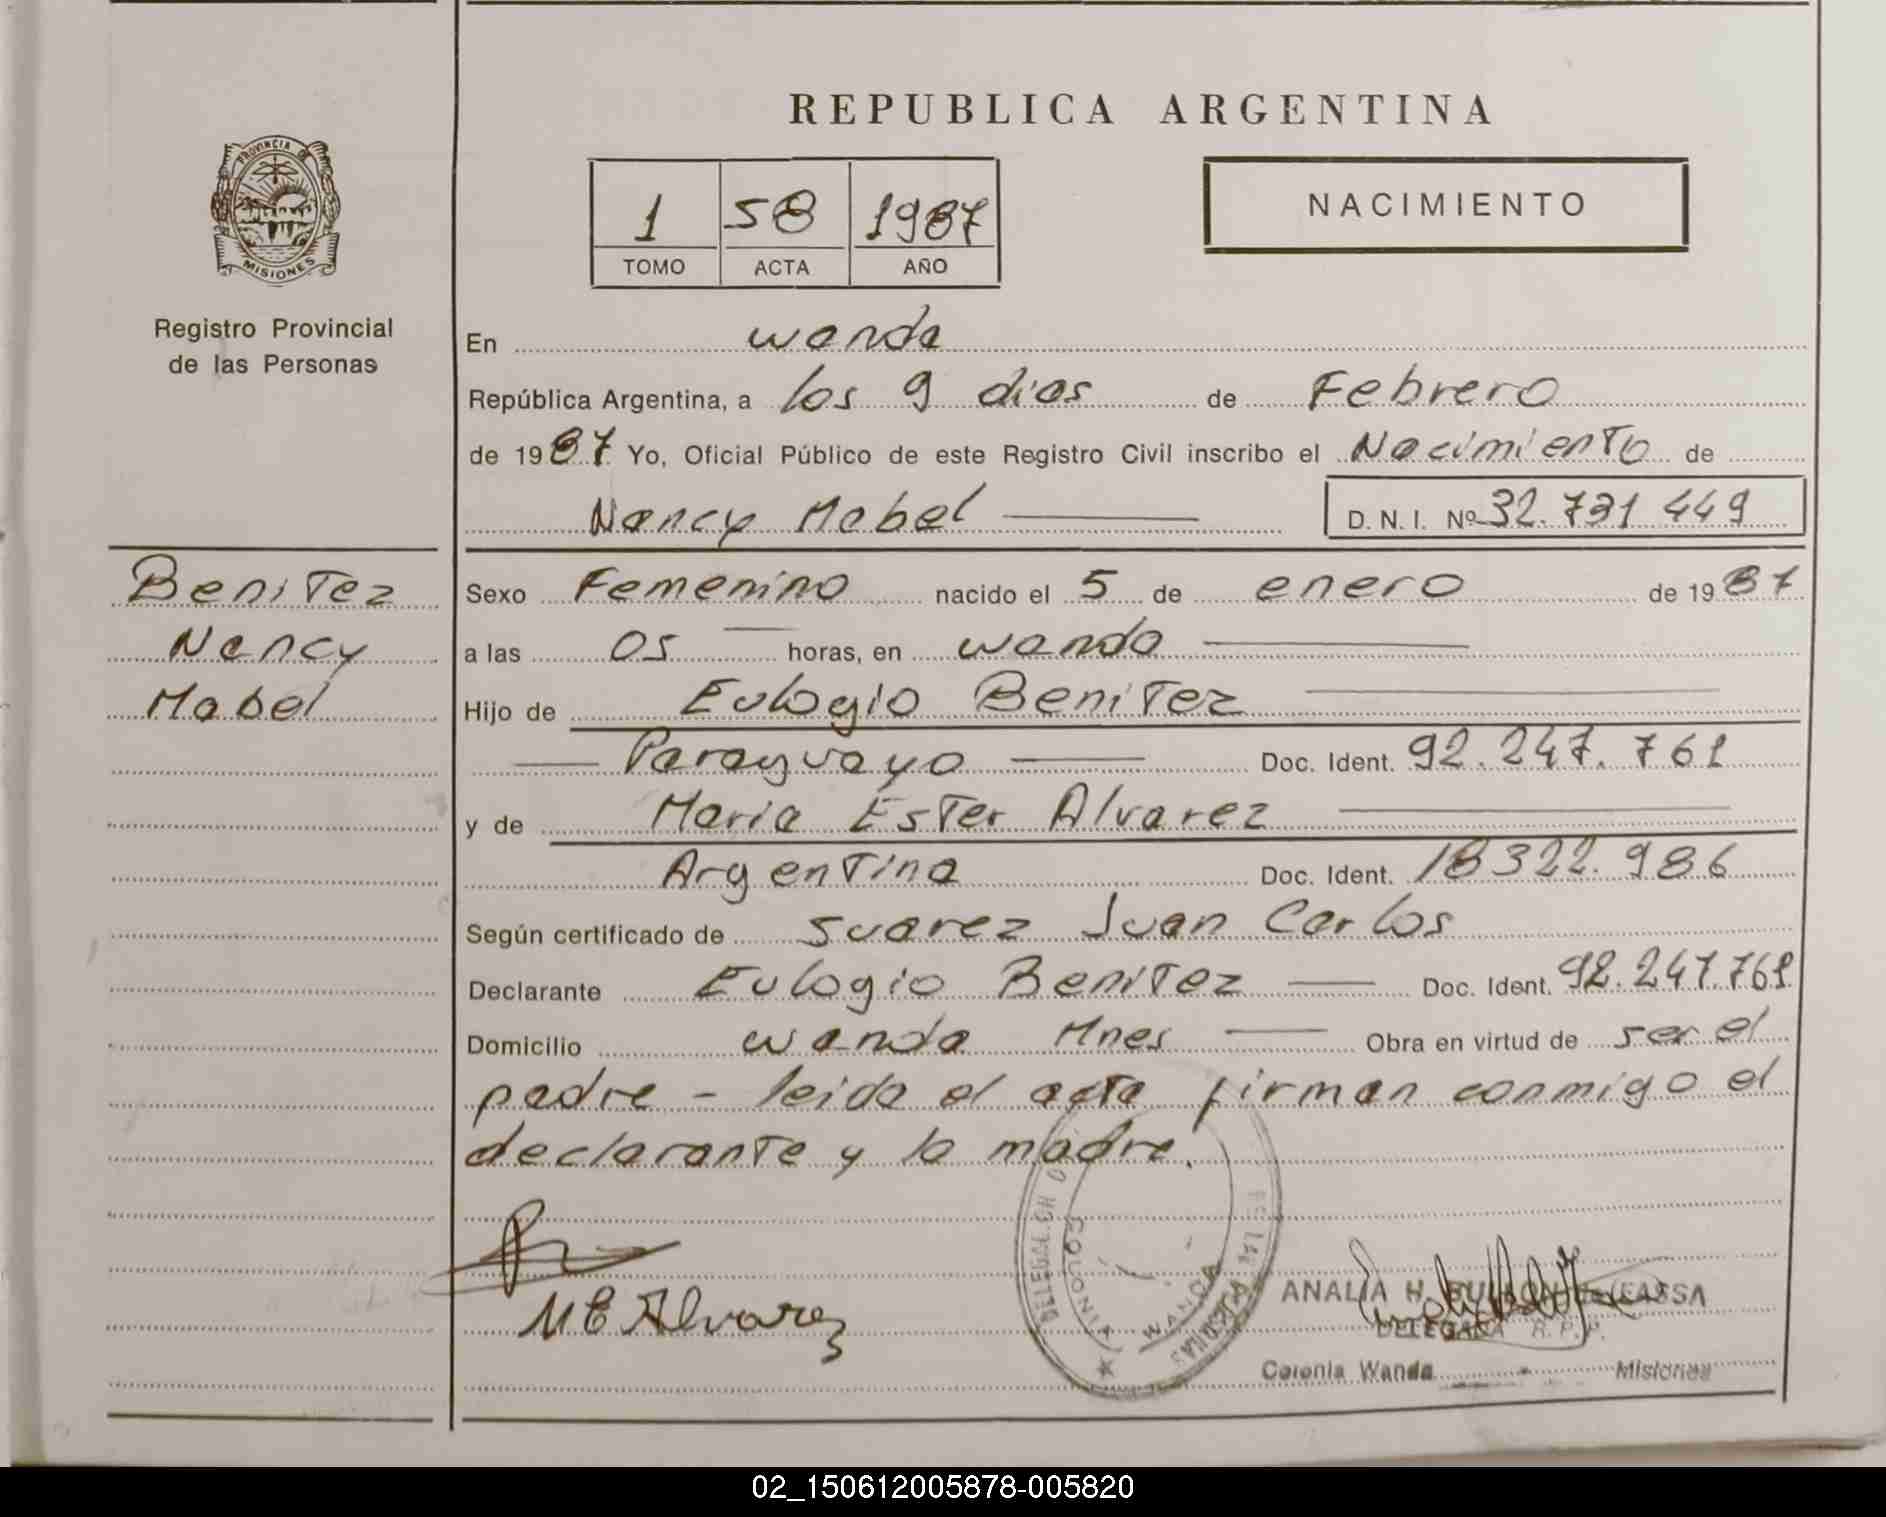 REPUBLICA ARGENTINA
PROVINCIA DE
MISIONES
Registro Provincial
de las Personas
1 58 1987
TOMO ACTA AÑO
NACIMIENTO
En wanda
República Argentina, a los 9 dias de Febrero
de 1987 Yo, Oficial Público de este Registro Civil inscribo el Nacimiento de
Nancy Mabel D.N.I. Nº 32.731449
Benitez
Nancy
Mabel
Sexo Femenino nacido el 5 de enero de 1987
a las 05 horas, en wanda
Hijo de Eulogio Benitez
Paraguayo Doc. Ident. 92.247.761
y de Maria Ester Alvarez
Argentina Doc. Ident. 18322.986
Según certificado de Suarez Juan Carlos
Declarante Eulogio Benitez Doc. Ident. 92.247.761
Domicilio wanda Mnes Obra en virtud de ser el
padre - leida el acta firman conmigo el
declarante y la madre.
M E Alvarez
COLONIA WANDA
MISIONES
ANALIA H.
DELEGADA R.P.P.
Colonia Wanda - Misiones
02_150612005878-005820